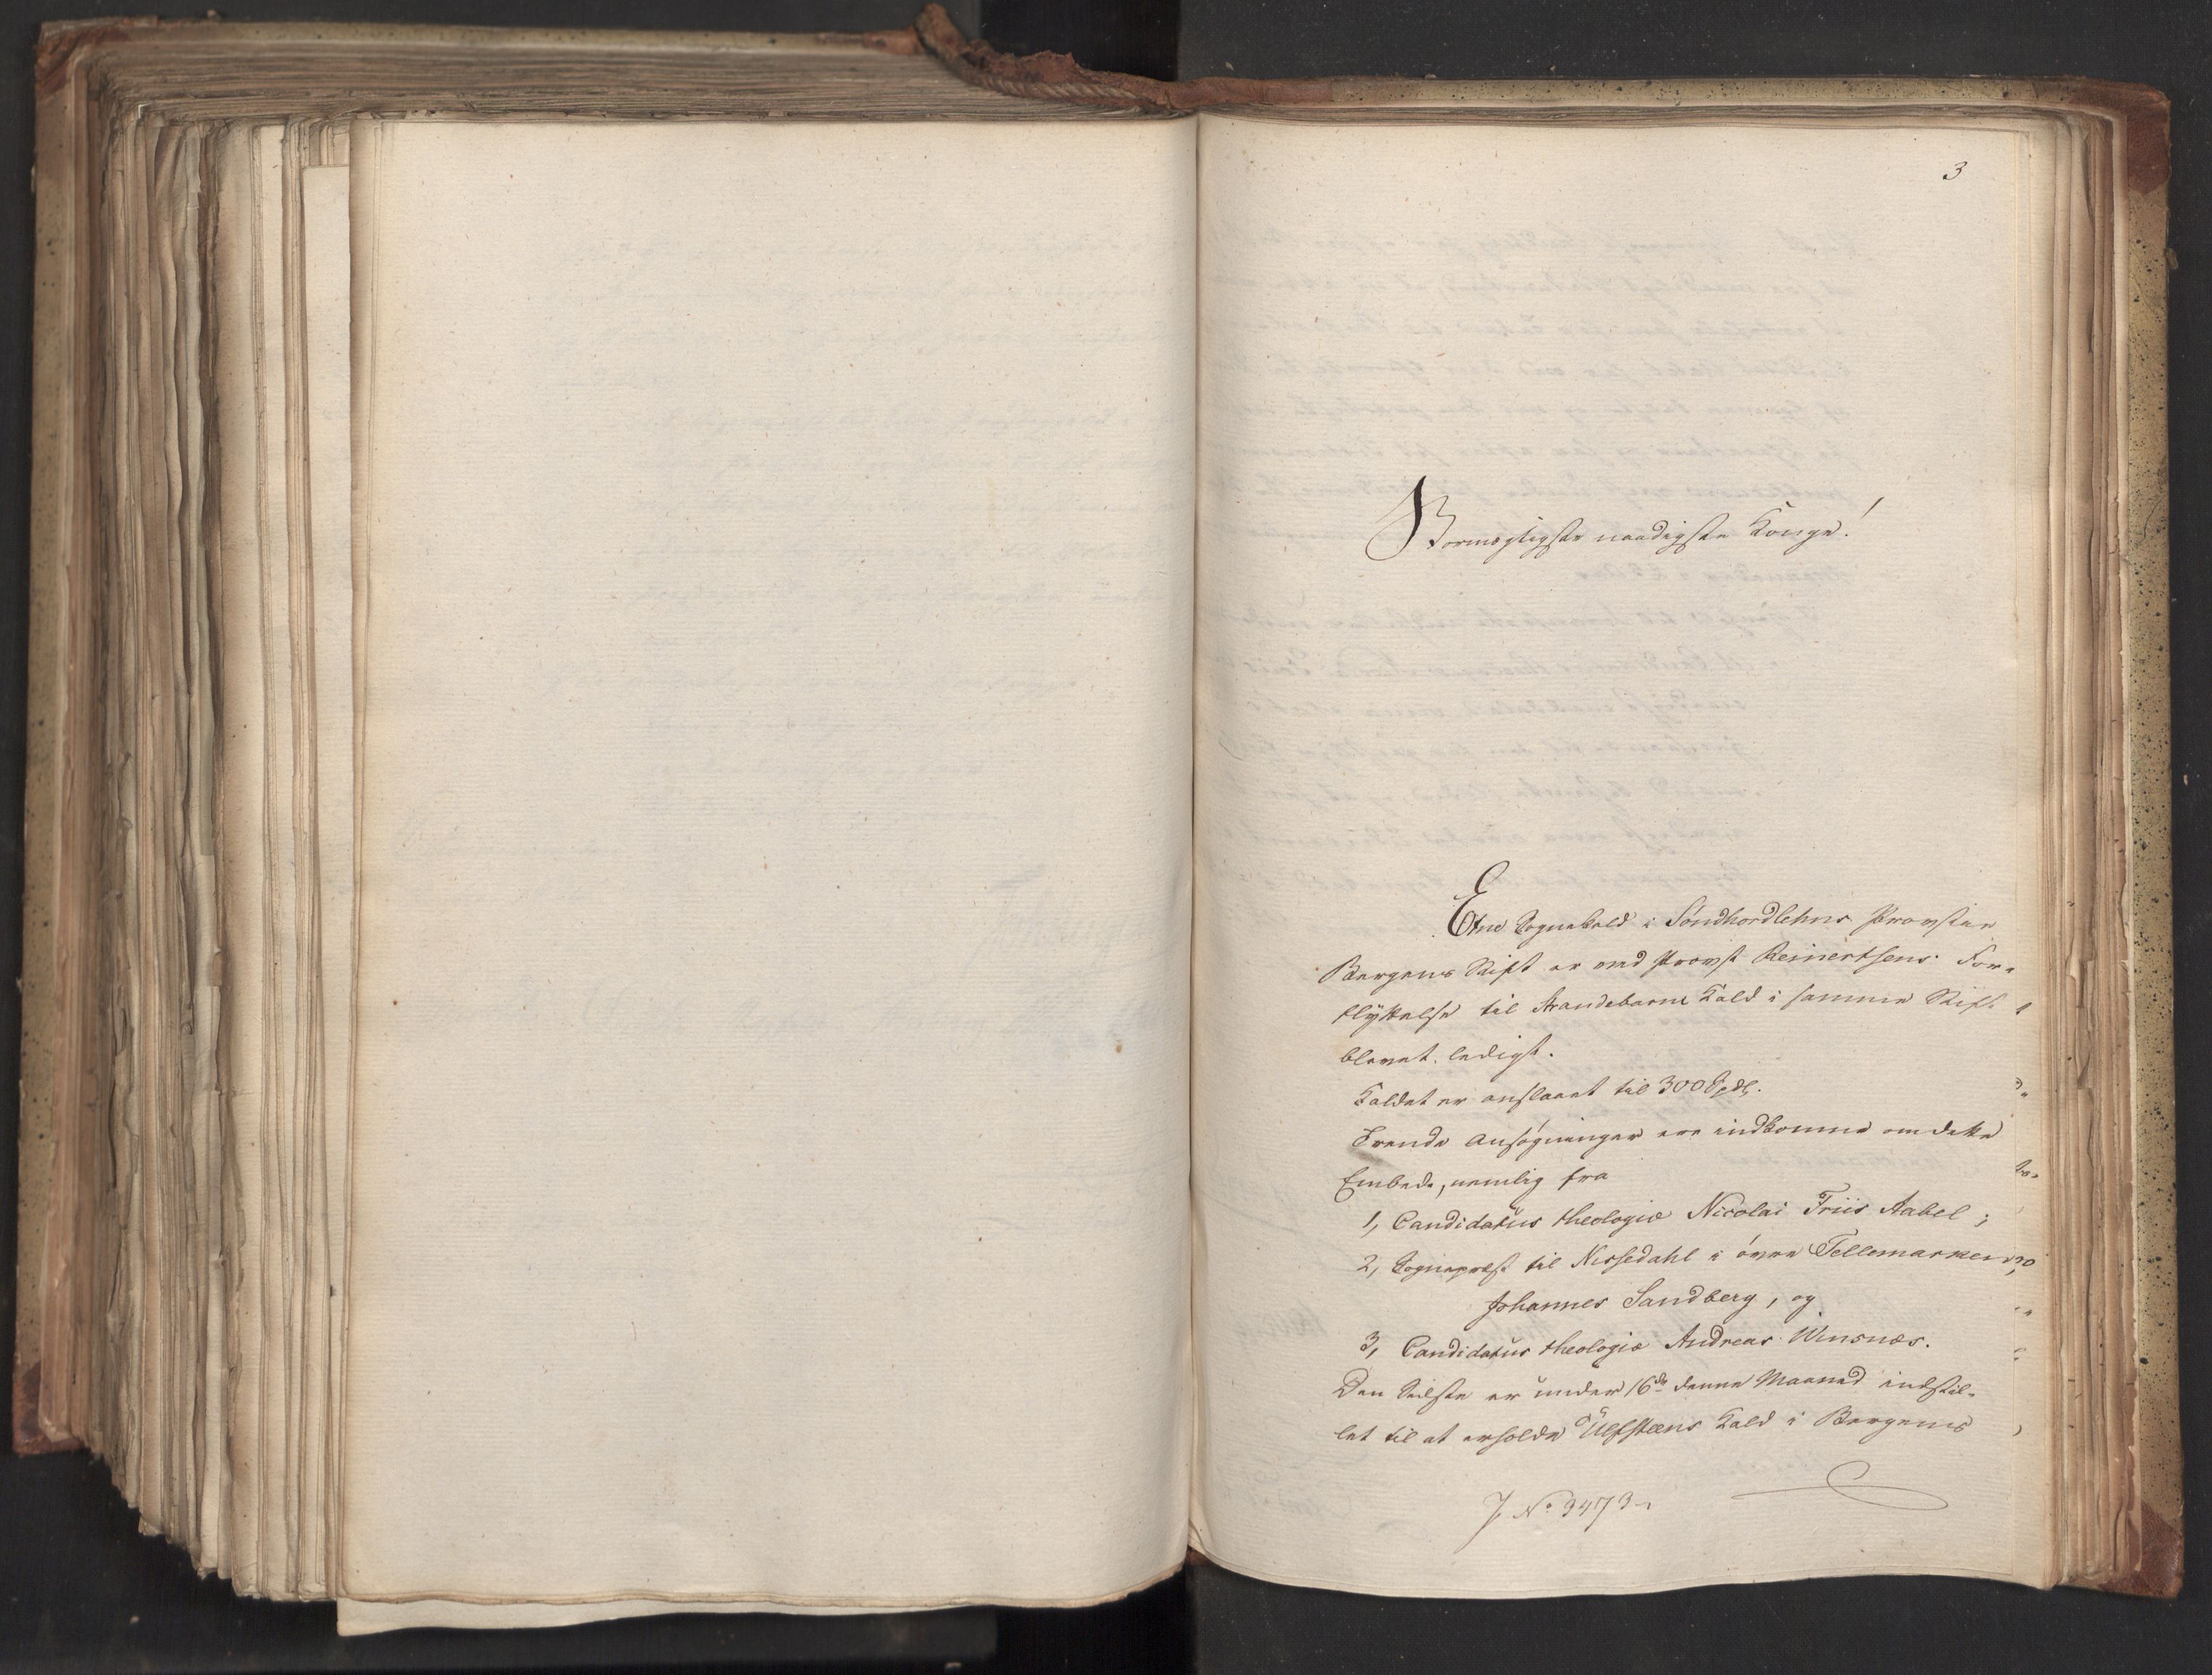 3
Stormægtigste naadigste Konge!
Etne Sognekald i Söndhordlehns Provstie
Bergens Stift er ved Provst Reinertsens For-
flyttelse til Strandebarm Kald i samme Stift
blevet ledigt.
Kaldet er anslaaet til 300 Spdl.
Trende Ansøgninger ere indkomne om dette
Embede, nemlig fra
1, Candidatus theologiæ Nicolai Friis Aabel;
2, Sognepræst til Nissedahl i övre Tellemarken
Johannes Sandberg, og
3, Candidatus theologiæ Andreas Winsnes.
Den Sidste er under 16de denne Maaned indstil-
let til at erholde Ulfsteens Kald i Bergens
J. No 9473